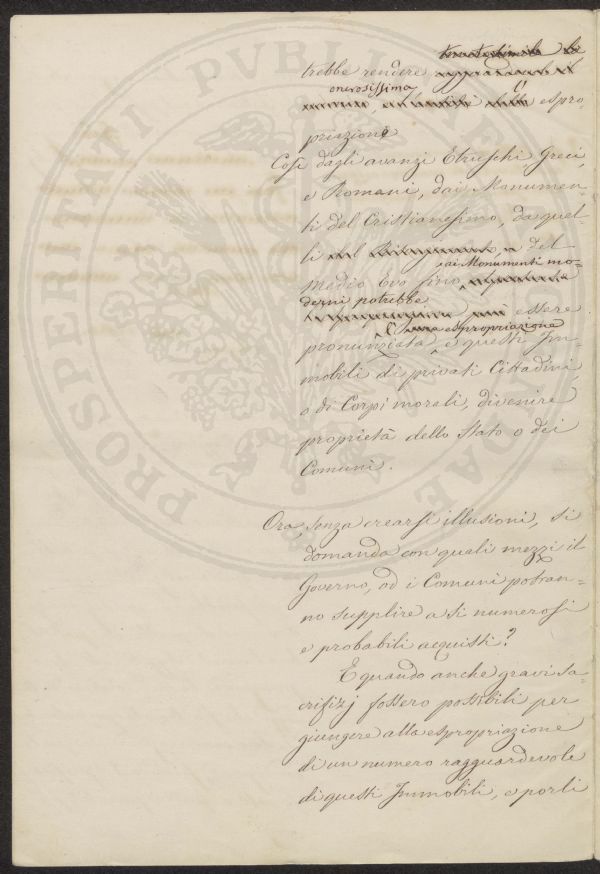 trebbe rendere
onerosissima
l' espro-
priazione
Così dagli avanzi Etruschi, Greci,
e Romani, dai Monumen-
ti del Cristianesimo, da quel-
li del
Medio Evo fino ai Monumenti mo-
derni potrebbe
essere
pronunziata l'espropriazione e questi Im-
mobili di privati Cittadini,
o di Corpi morali, divenire
proprietà dello Stato o dei
Comuni.
Ora, senza crearsi illusioni, si
domanda con quali mezzi il
Governo, od i Comuni potran-
no supplire a sì numerosi
e probabili acquisti?
E quando anche gravi sa-
crifizj fossero possibili per
giungere alla espropriazione
di un numero ragguardevole
di questi Immobili, e porli
PROSPERITATI PVBLICAE